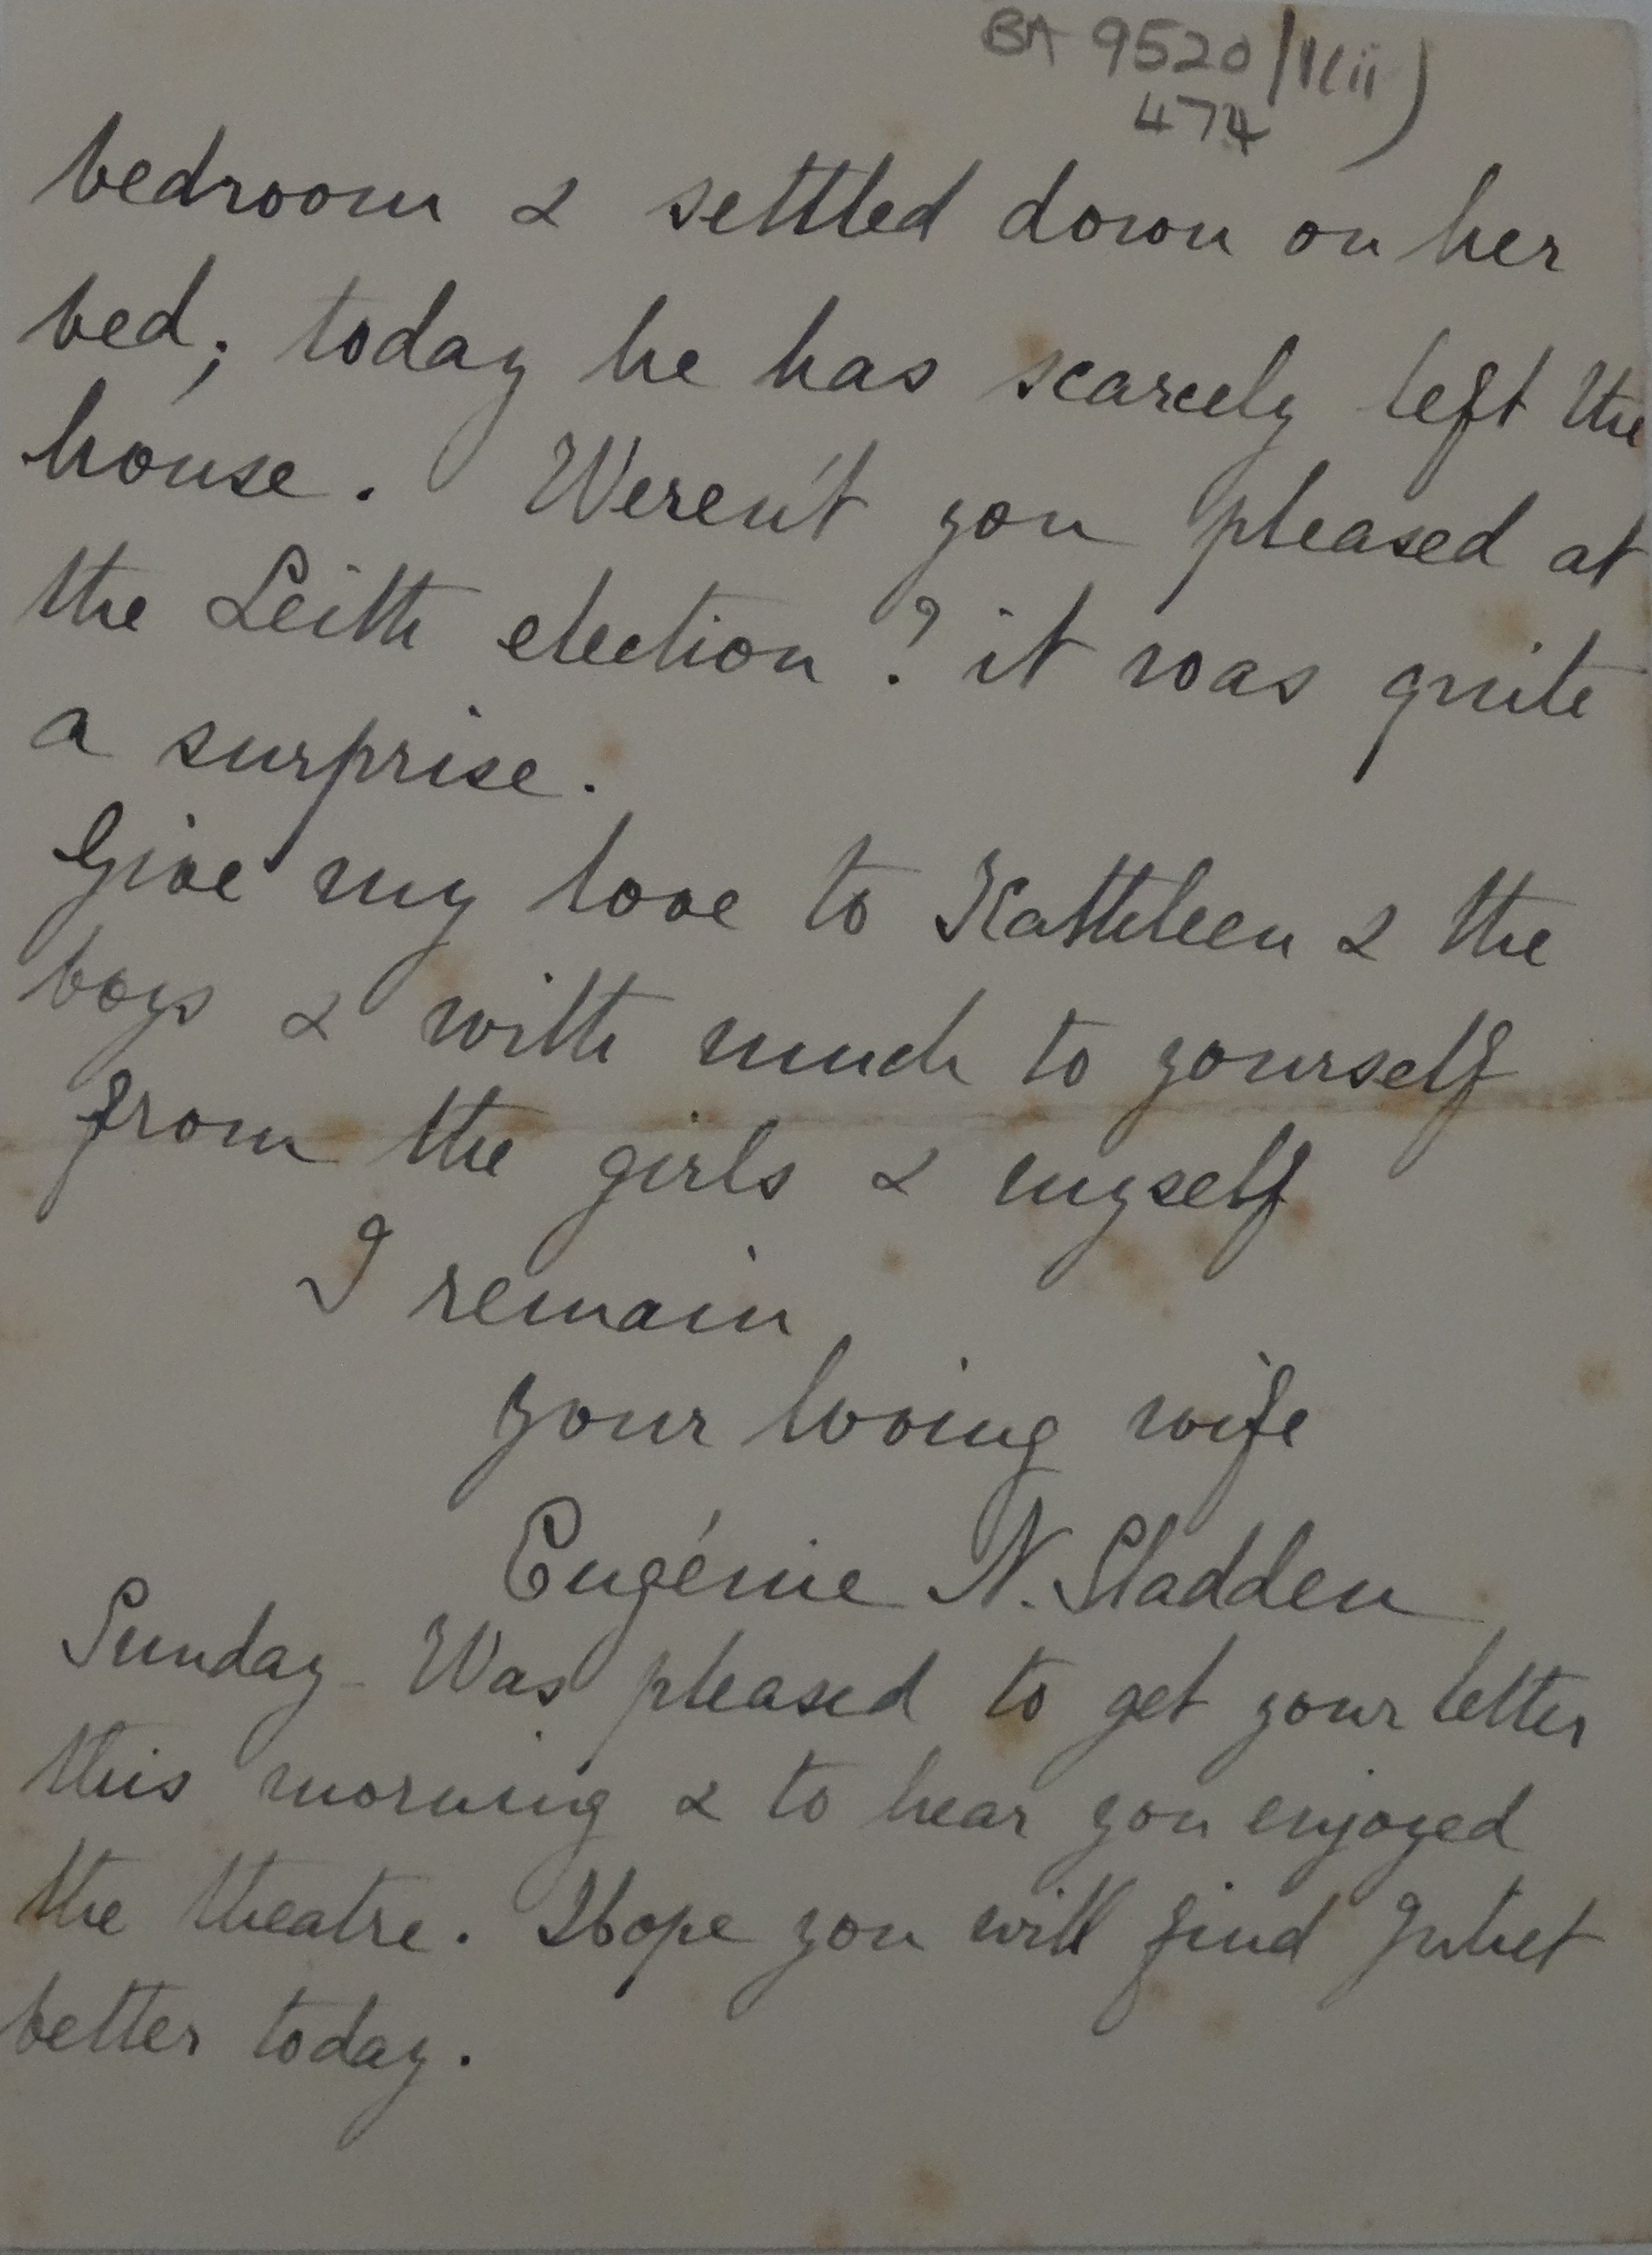 BA 9520/1(ii)
474
bedroom & settled down on her
bed; today he has scarcely left the
house. Weren't you pleased at
the Leith election? it was quite
a surprise.
Give my love to Kathleen & the
boys & with much to yourself
from the girls & myself
I remain
your loving wife
Eugénie N. Sladden
Sunday - Was pleased to get your letter
this morning & to hear you enjoyed
the theatre. Hope you will find Juliet
better today.